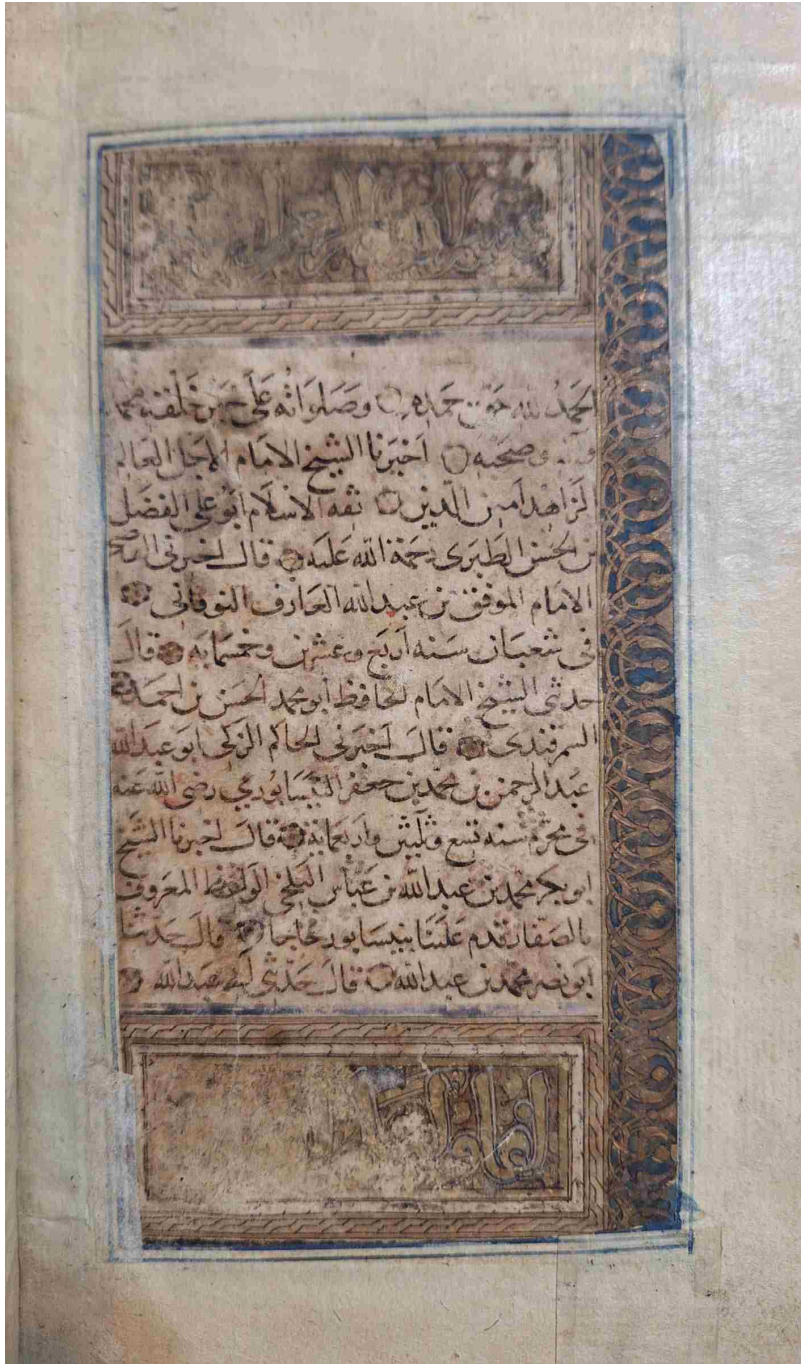 الحمد لله حق حمده وصلواته على خير خلقه محمد
وآله وصحبه اخبرنا الشيخ الامام الاجل العالم
الزاهد امين الدين ثقة الاسلام ابو على الفضل
بن الحسن الطبرى رحمة الله عليه قال اخبرنى الشيخ
الامام الموفق بن عبد الله العارف النوقانى
فى شعبان سنه اربع وعشرين وخمسمايه قال
حدثنى الشيخ الامام الحافظ ابو محمد الحسن بن احمد
السمرقندى قال اخبرنى الحاكم الزكى ابو عبد الله
عبد الرحمن بن محمد بن جعفر النيسابورى رضى الله عنه
فى سنه تسع وثلثين واربعمائة قال اخبرنا الشيخ
ابو بكر محمد بن عبد الله بن عباس البلخى الواعظ المعروف
بالصفار قدم علينا بنيسابور حاجا قال حدثنا
ابو نصر محمد بن عبد الله قال حدثنى عبد الله